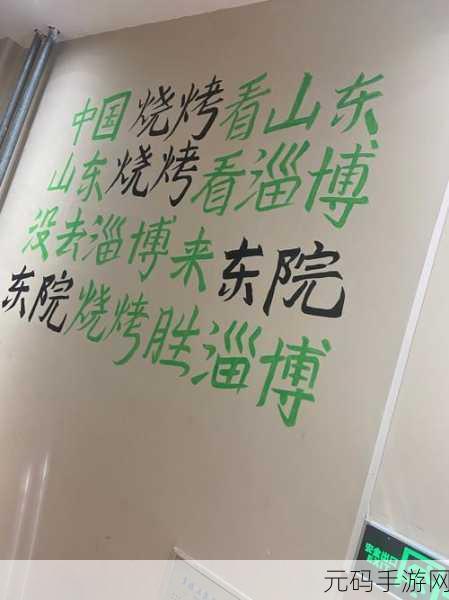 中国烧烤看山东
山东烧烤看淄博
没去淄博来东院
东院烧烤胜淄博
安全出口
EXIT
元码手游网